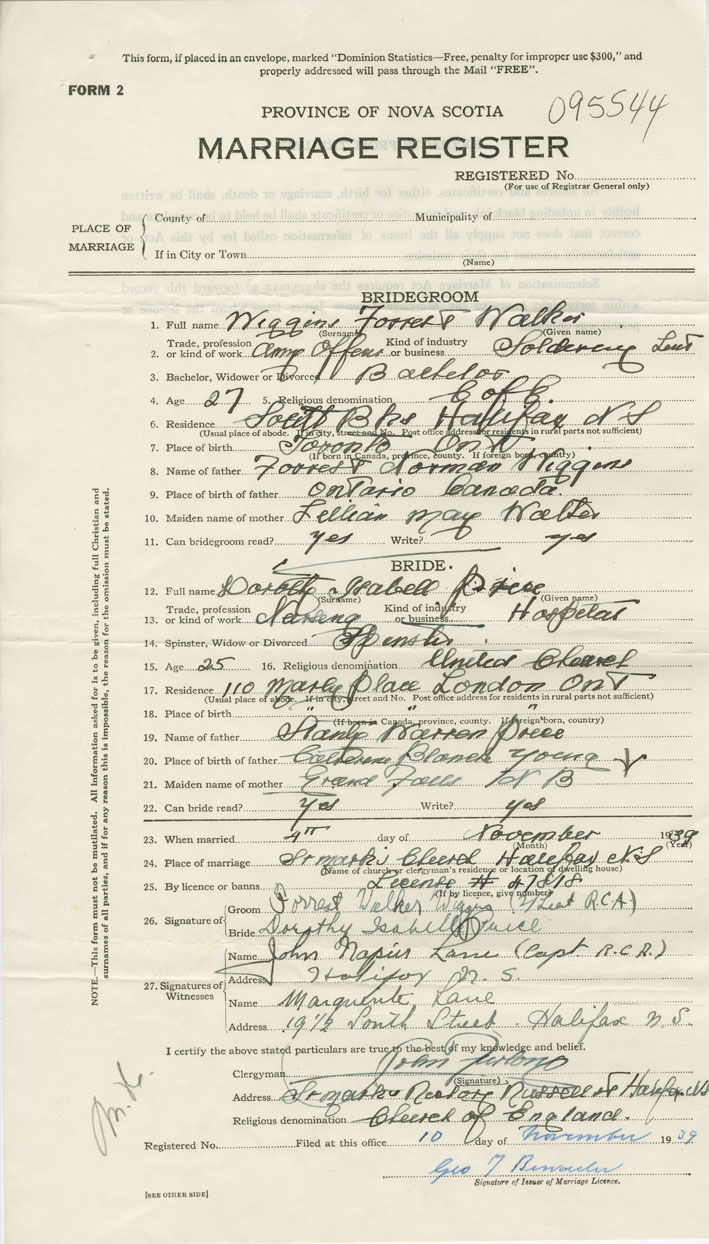 This form, if placed in an envelope, marked "Dominion Statistics—Free, penalty for improper use $300," and
properly addressed will pass through the Mail "FREE".
FORM 2
095544
PROVINCE OF NOVA SCOTIA
MARRIAGE REGISTER
REGISTERED No.
(For use of Registrar General only)
PLACE OF MARRIAGE
County of Municipality of
If in City or Town
(Name)
BRIDEGROOM
1. Full name Wiggins Forrest Walker
(Surname) (Given name)
2. Trade, profession or kind of work Army Officer Kind of industry or business Soldiering Lieut
3. Bachelor, Widower or Divorced Bachelor
4. Age 27 5. Religious denomination C of E.
6. Residence South Bks Halifax N S
(Usual place of abode. If in city, street and No. Post office address for residents in rural parts not sufficient)
7. Place of birth Toronto Ont
(If born in Canada, province, county. If foreign born, country)
8. Name of father Forrest Norman Wiggins
9. Place of birth of father Ontario Canada.
10. Maiden name of mother Lillian May Walter
11. Can bridegroom read? yes Write? yes
BRIDE.
12. Full name Dorothy Isabell Price
(Surname) (Given name)
13. Trade, profession or kind of work Nursing Kind of industry or business Hospital
14. Spinster, Widow or Divorced Spinster
15. Age 25 16. Religious denomination United Church
17. Residence 110 Place London Ont
(Usual place of abode. If in city, street and No. Post office address for residents in rural parts not sufficient)
18. Place of birth " " "
(If born in Canada, province, county. If foreign born, country)
19. Name of father Warren Price
20. Place of birth of father Blanch Young
21. Maiden name of mother Grand Falls N B
22. Can bride read? yes Write? yes
23. When married 4th day of November 1939
(Month) (Year)
24. Place of marriage St marks Church Halifax N S
(Name of church or clergyman's residence or location of dwelling house)
25. By licence or banns License # 47818
(If by licence, give number)
26. Signature of
Groom Forrest Walker Wiggins (Lieut R.C.A)
Bride Dorothy Isabell Price
27. Signatures of Witnesses
Name John Napier Lane (Capt. R.C.R.)
Address Halifax N. S.
Name Marguerite Lane
Address 19½ South Street. Halifax N. S.
I certify the above stated particulars are true to the best of my knowledge and belief.
Clergyman John Furlong
(Signature)
Address St marks Rectory Russell St Halifax NS
Religious denomination Church of England.
Registered No. Filed at this office 10 day of November 1939
Geo T
Signature of Issuer of Marriage Licence.
[SEE OTHER SIDE]
NOTE.—This form must not be mutilated. All information asked for is to be given, including full Christian and
surnames of all parties, and if for any reason this is impossible, the reason for the omission must be stated.